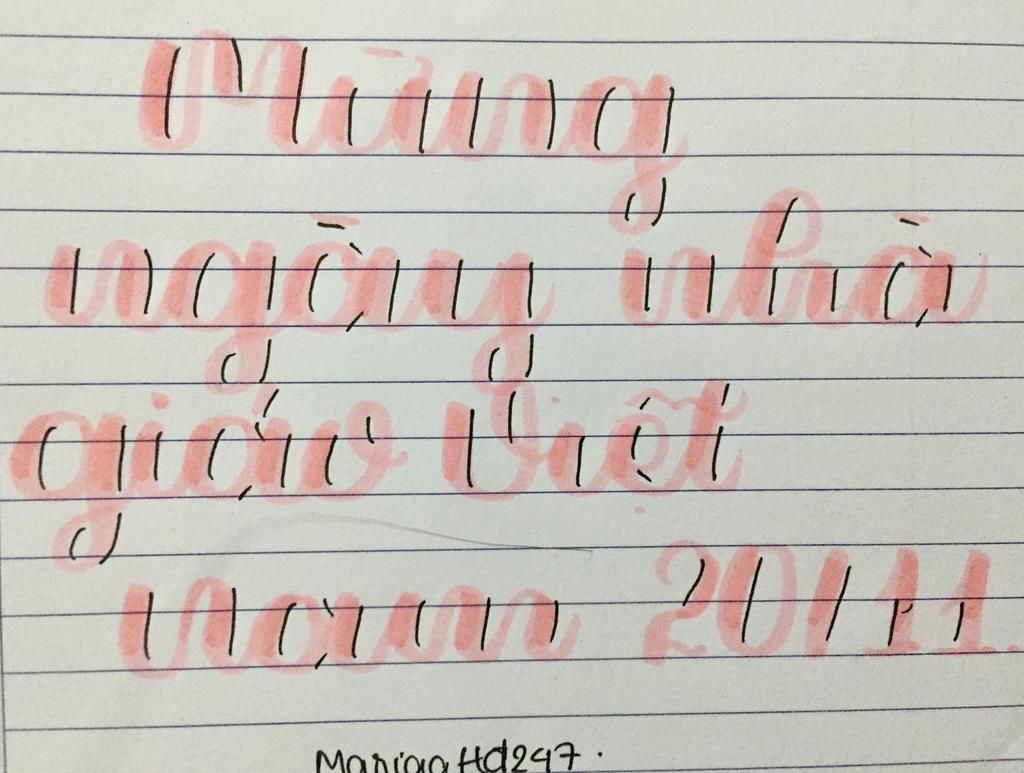 Mừng
ngày nhà
giáo Việt
nam 20/11.
MariaaHd247.